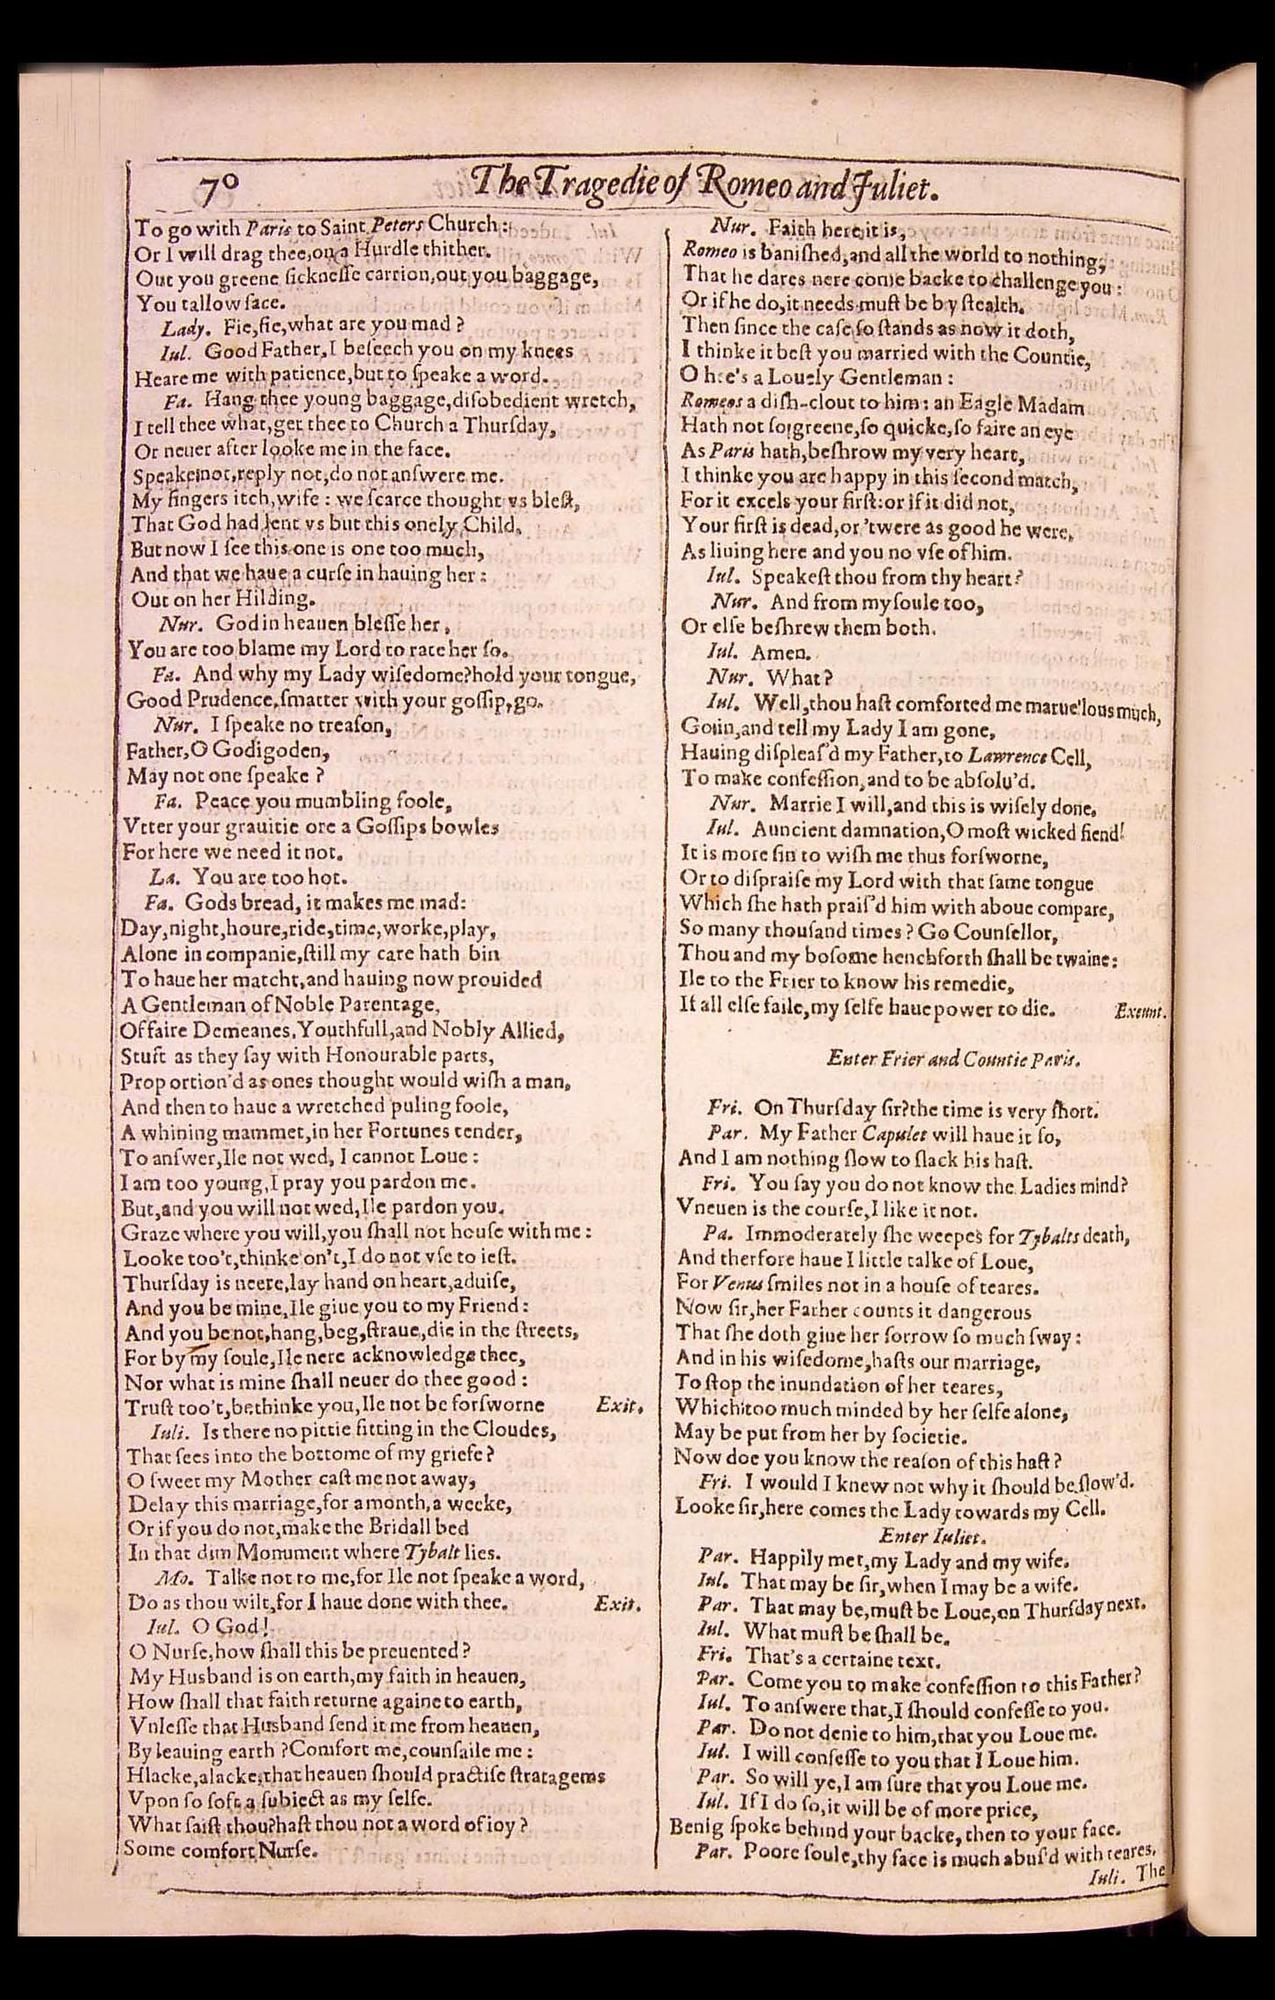 70
The Tragedie of Romeo and Juliet.
To go with Paris to Saint Peters Church:
Or I will drag thee, on a Hurdle thither.
Out you greene sicknesse carrion, out you baggage,
You tallow face.
Lady. Fie, fie, what are you mad?
Iul. Good Father, I beseech you on my knees
Heare me with patience, but to speake a word.
Fa. Hang thee young baggage, disobedient wretch,
I tell thee what, get thee to Church a Thursday,
Or neuer after looke me in the face.
Speake not, reply not, do not answere me.
My fingers itch, wife: we scarce thought vs blest,
That God had lent vs but this onely Child,
But now I see this one is one too much,
And that we haue a curse in hauing her:
Out on her Hilding.
Nur. God in heauen blesse her,
You are too blame my Lord to rate her so.
Fa. And why my Lady wisedome? hold your tongue,
Good Prudence, smatter with your gossip, go.
Nur. I speake no treason,
Father, O Godigoden,
May not one speake?
Fa. Peace you mumbling foole,
Vtter your grauitie ore a Gossips bowles
For here we need it not.
La. You are too hot.
Fa. Gods bread, it makes me mad:
Day, night, houre, ride, time, worke, play,
Alone in companie, still my care hath bin
To haue her matcht, and hauing now prouided
A Gentleman of Noble Parentage,
Of faire Demeanes, Youthfull, and Nobly Allied,
Stuft as they say with Honourable parts,
Proportion'd as ones thought would wish a man,
And then to haue a wretched puling foole,
A whining mammet, in her Fortunes tender,
To answer, Ile not wed, I cannot Loue:
I am too young, I pray you pardon me.
But, and you will not wed, Ile pardon you.
Graze where you will, you shall not house with me:
Looke too't, thinke on't, I do not vse to iest.
Thursday is neere, lay hand on heart, aduise,
And you be mine, Ile giue you to my Friend:
And you be not, hang, beg, straue, die in the streets,
For by my soule, Ile nere acknowledge thee,
Nor what is mine shall neuer do thee good:
Trust too't, bethinke you, Ile not be forsworne Exit.
Iuli. Is there no pittie sitting in the Cloudes,
That sees into the bottome of my griefe?
O sweet my Mother cast me not away,
Delay this marriage, for a month, a weeke,
Or if you do not, make the Bridall bed
In that dim Monument where Tybalt lies.
Mo. Talke not to me, for Ile not speake a word,
Do as thou wilt, for I haue done with thee. Exit.
Iul. O God!
O Nurse, how shall this be preuented?
My Husband is on earth, my faith in heauen,
How shall that faith returne againe to earth,
Vnlesse that Husband send it me from heauen,
By leauing earth? Comfort me, counsaile me:
Hlacke, alacke, that heauen should practise stratagems
Vpon so soft a subiect as my selfe.
What saist thou? hast thou not a word of ioy?
Some comfort Nurse.
Nur. Faith here it is,
Romeo is banished, and all the world to nothing,
That he dares nere come backe to challenge you:
Or if he do, it needs must be by stealth.
Then since the case so stands as now it doth,
I thinke it best you married with the Countie,
O hee's a Louely Gentleman:
Romeos a dish-clout to him: an Eagle Madam
Hath not so greene, so quicke, so faire an eye
As Paris hath, beshrow my very heart,
I thinke you are happy in this second match,
For it excels your first: or if it did not,
Your first is dead, or 'twere as good he were,
As liuing here and you no vse of him.
Iul. Speakest thou from thy heart?
Nur. And from my soule too,
Or else beshrew them both.
Iul. Amen.
Nur. What?
Iul. Well, thou hast comforted me marue'lous much,
Go in, and tell my Lady I am gone,
Hauing displeas'd my Father, to Lawrence Cell,
To make confession, and to be absolu'd.
Nur. Marrie I will, and this is wisely done.
Iul. Auncient damnation, O most wicked fiend!
It is more sin to wish me thus forsworne,
Or to dispraise my Lord with that same tongue
Which she hath prais'd him with aboue compare,
So many thousand times? Go Counsellor,
Thou and my bosome henchforth shall be twaine:
Ile to the Frier to know his remedie,
If all else faile, my selfe haue power to die. Exeunt.
Enter Frier and Countie Paris.
Fri. On Thursday sir? the time is very short.
Par. My Father Capulet will haue it so,
And I am nothing slow to slack his hast.
Fri. You say you do not know the Ladies mind?
Vneuen is the course, I like it not.
Pa. Immoderately she weepes for Tybalts death,
And therfore haue I little talke of Loue,
For Venus smiles not in a house of teares.
Now sir, her Father counts it dangerous
That she doth giue her sorrow so much sway:
And in his wisedome, hasts our marriage,
To stop the inundation of her teares,
Which too much minded by her selfe alone,
May be put from her by societie.
Now doe you know the reason of this hast?
Fri. I would I knew not why it should be slow'd.
Looke sir, here comes the Lady towards my Cell.
Enter Iuliet.
Par. Happily met, my Lady and my wife.
Iul. That may be sir, when I may be a wife.
Par. That may be, must be Loue, on Thursday next.
Iul. What must be shall be.
Fri. That's a certaine text.
Par. Come you to make confession to this Father?
Iul. To answere that, I should confesse to you.
Par. Do not denie to him, that you Loue me.
Iul. I will confesse to you that I Loue him.
Par. So will ye, I am sure that you Loue me.
Iul. If I do so, it will be of more price,
Benig spoke behind your backe, then to your face.
Par. Poore soule, thy face is much abus'd with teares.
Iuli. The